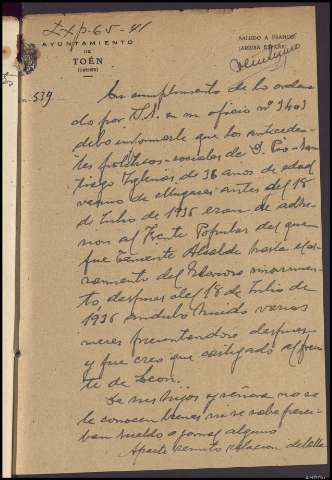 Exp-65-41
AYUNTAMIENTO
DE
TOÉN
(ORENSE)
SALUDO A FRANCO
¡ARRIBA ESPAÑA!
n. 539
En cumplimento de lo ordena
do por V.S. en su oficio nº 3403
debo informarle que los anteceden-
tes politicos-sociales de D. Pio San-
tiago Iglesias de 36 anos de edad
vecino de Mugares antes del 18
de Julio de 1936 eran de adhe-
sion al Frente Popular del que
fue Teniente Alcalde hasta el
del Glorioso movimien-
to despues del 18 de Julio de
1936 anduvo huido varios
meses presentandose despues
y fue creo que castigado al fren-
te de Leon.
De sus hijos y señora no se
le conocen bienes ni se sabe perci-
ban sueldo o jornal alguno
Aparte remito relacion